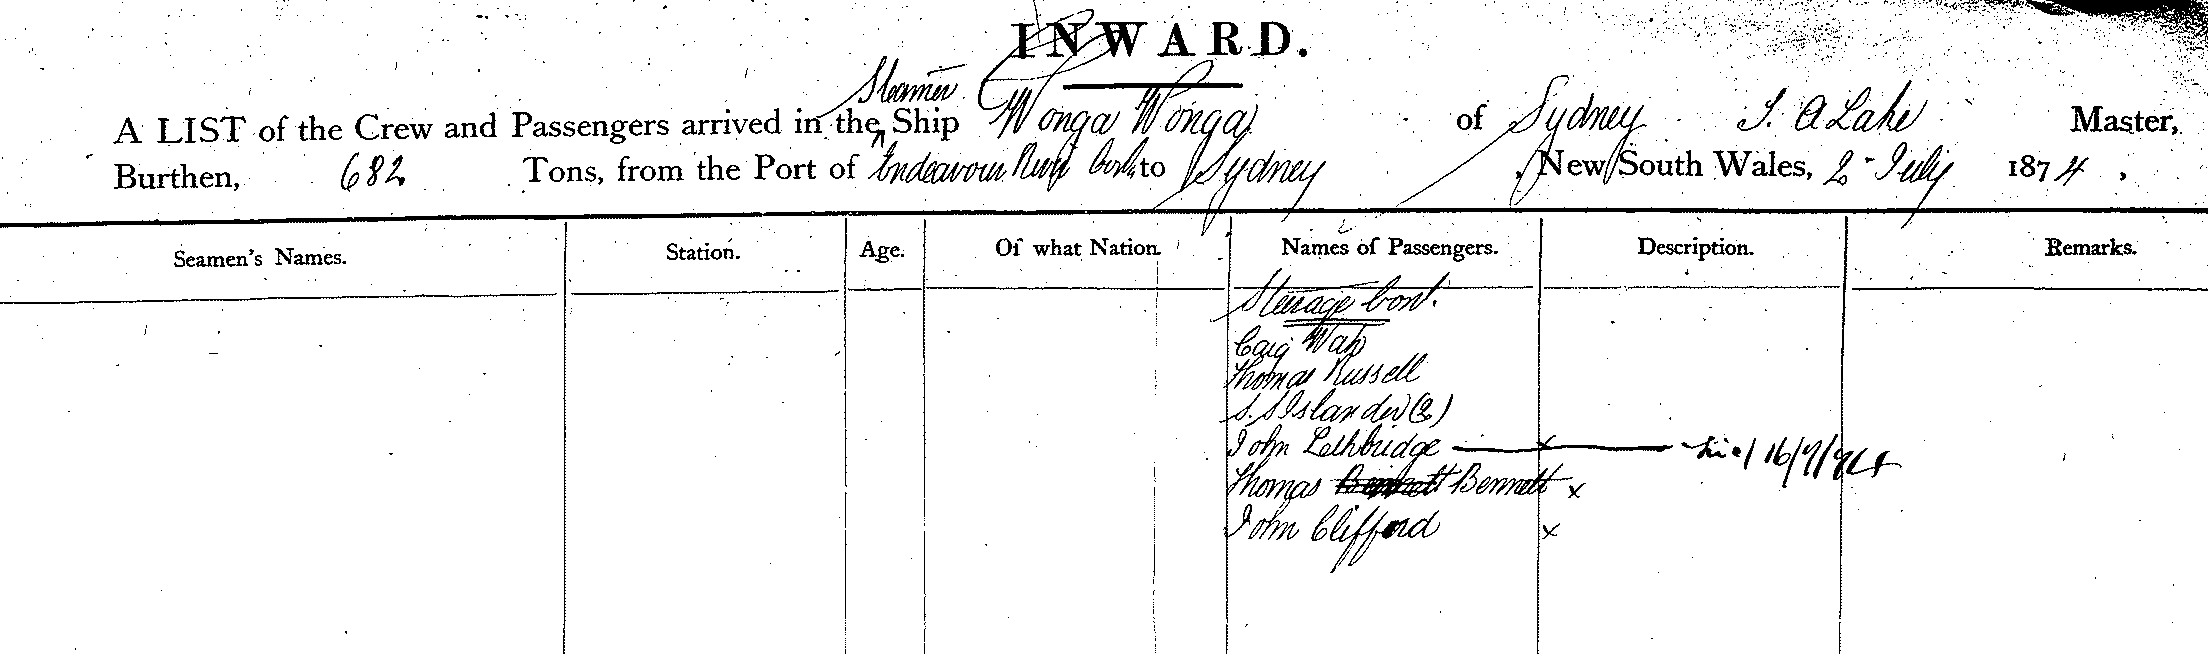 INWARD.
Steamer
A LIST of the Crew and Passengers arrived in the ^ Ship Wonga Wonga of Sydney J. A Lake Master,
Burthen, 682 Tons, from the Port of Endeavour River to Sydney, New South Wales, 2 July 1874,
Seamen's Names. Station. Age. Of what Nation. Names of Passengers. Description. Remarks.
Steerage Cont.
Wah
Thomas Russell
S. S Islander (2)
John Lethbridge x
Thomas Bennett Bennett x
John Clifford x